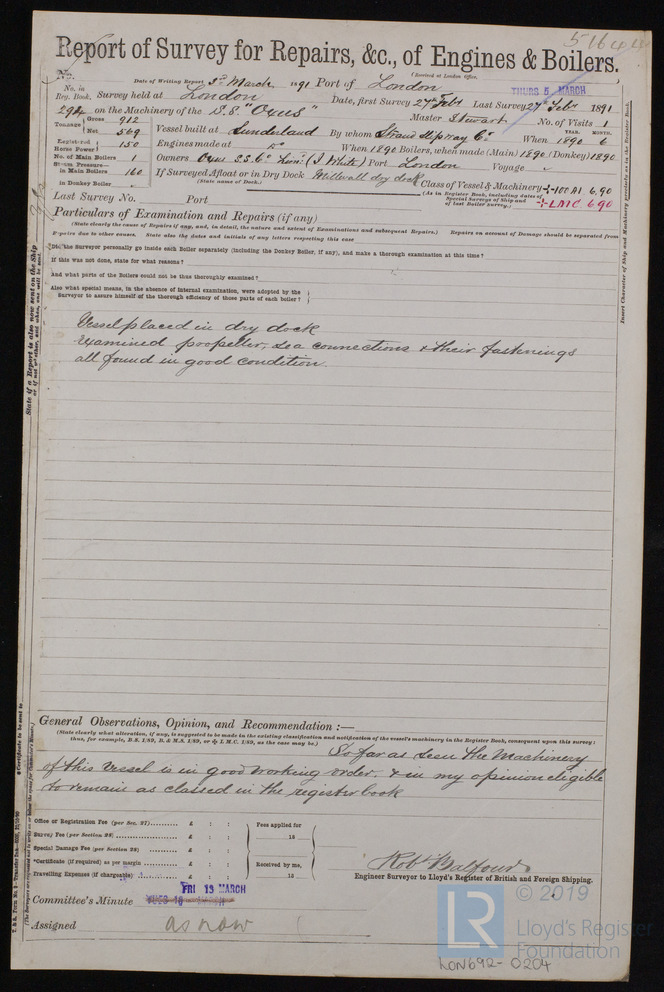 Report of Survey for Repairs, &c., of Engines & Boilers.
No.
Date of Writing Report 3rd March 1891 Port of London
(Received at London Office.
THURS 5 MARCH
No. in Reg. Book.
Survey held at London
Date, first Survey 27th Feb Last Survey 27th Feb 1891
294 on the Machinery of the "S.S. "Oxus"
Master Stewart No. of Visits 1
Tonnage Gross 912
Net 569
Vessel built at Sunderland By whom Strand Slipway Co. When YEAR. 1890 MONTH. 6
Registered Horse Power 150
Engines made at Do When 1890 Boilers, when made (Main) 1890 (Donkey) 1890
No. of Main Boilers 1
Owners Oxus S.S. Co Lim: (J White) Port London Voyage
Steam Pressure in Main Boilers 160
in Donkey Boiler
If Surveyed Afloat or in Dry Dock Millwall dry dock
(State name of Dock.)
Class of Vessel & Machinery +100A1 6.90
(As in Register Book, including dates of Special Surveys of Ship and of last Boiler Survey.) +LMC 6.90
Last Survey No. Port
Particulars of Examination and Repairs (if any)
(State clearly the cause of Repairs if any, and, in detail, the nature and extent of Examinations and subsequent Repairs.) Repairs on account of Damage should be separated from
Repairs due to other causes. State also the dates and initials of any letters respecting this case
Did the Surveyor personally go inside each Boiler separately (including the Donkey Boiler, if any), and make a thorough examination at this time?
If this was not done, state for what reasons?
And what parts of the Boilers could not be thus thoroughly examined?
Also what special means, in the absence of internal examination, were adopted by the
Surveyor to assure himself of the thorough efficiency of those parts of each boiler?
Vessel placed in dry dock
examined propeller, sea connections & their fastenings
all found in good condition.
General Observations, Opinion, and Recommendation :—
(State clearly what alteration, if any, is suggested to be made in the existing classification and notification of the vessel's machinery in the Register Book, consequent upon this survey:
thus, for example, B.S. 1/89, B. & M.S. 1/89, or L.M.C. 1/89, as the case may be.)
So far as seen the Machinery
of this vessel is in good working order, & in my opinion eligible
to remains as classed in the register book
Office or Registration Fee (per Sec. 27) £ : :
Survey Fee (per Section 28) £ : :
Special Damage Fee (per Section 28) £ : :
*Certificate (if required) as per margin £ : :
Travelling Expenses (if chargeable) £ : :
Fees applied for
18
Received by me,
18
Robt Balfour
Engineer Surveyor to Lloyd's Register of British and Foreign Shipping.
FRI 13 MARCH
Committee's Minute
Assigned as now
© 2019
LR
Lloyd's Register
Foundation
LON692-0204
State if a Report is also now sent on the Ship
Insert Character of Ship and Machinery precisely as in the Register Book.